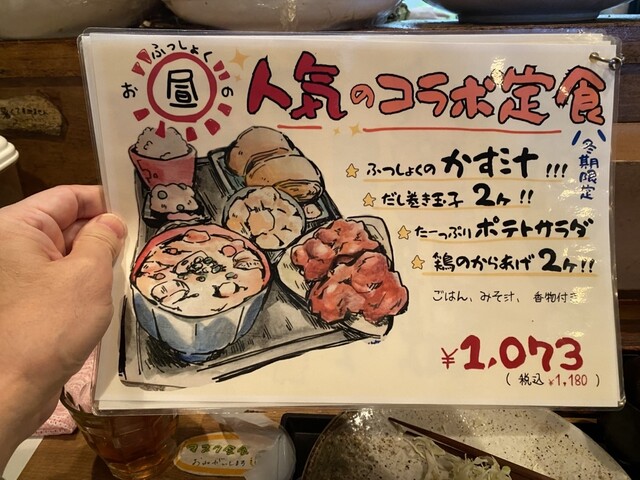 ふっしょく
お昼の
人気のコラボ定食
冬期限定
ふっしょくのかす汁!!!
だし巻き玉子2ヶ!!
たーっぷりポテトサラダ
鶏のからあげ2ヶ!!
ごはん、みそ汁、香物付き
¥1,073
(税込¥1,180)